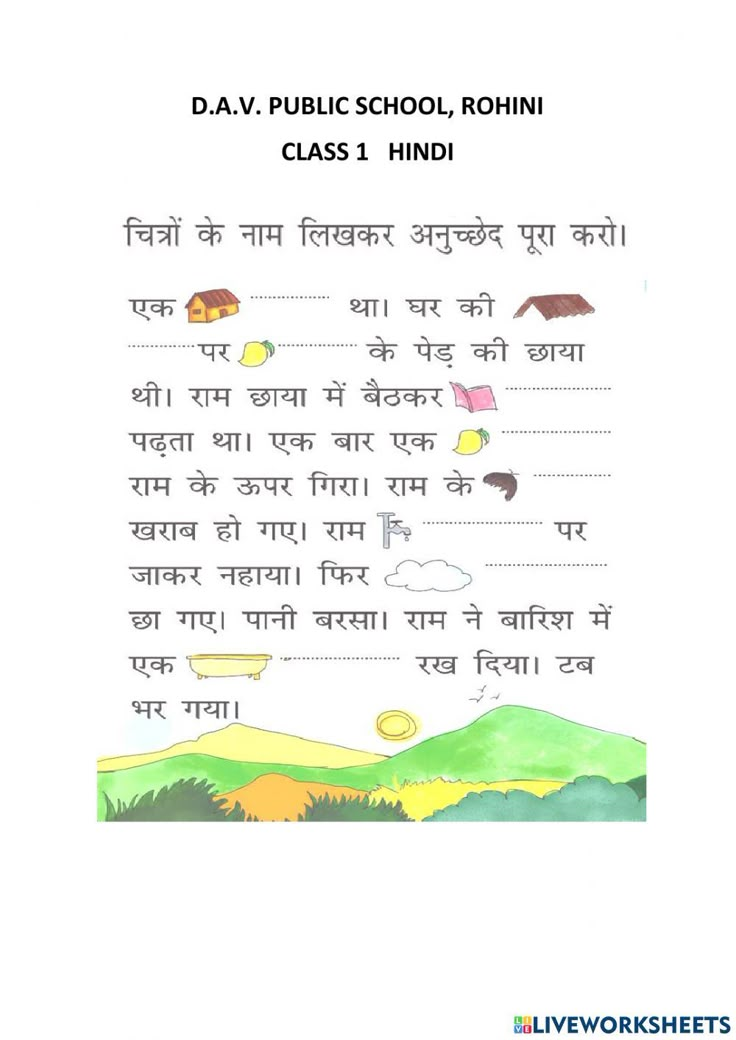 D.A.V. PUBLIC SCHOOL, ROHINI
CLASS 1 HINDI
चित्रों के नाम लिखकर अनुच्छेद पूरा करो।
एक ............... था। घर की
............ पर ............... के पेड़ की छाया
थी। राम छाया में बैठकर ...............
पढ़ता था। एक बार एक ...............
राम के ऊपर गिरा। राम के ...............
खराब हो गए। राम ............... पर
जाकर नहाया। फिर ...............
छा गए। पानी बरसा। राम ने बारिश में
एक ............... रख दिया। टब
भर गया।
LIVE LIVEWORKSHEETS